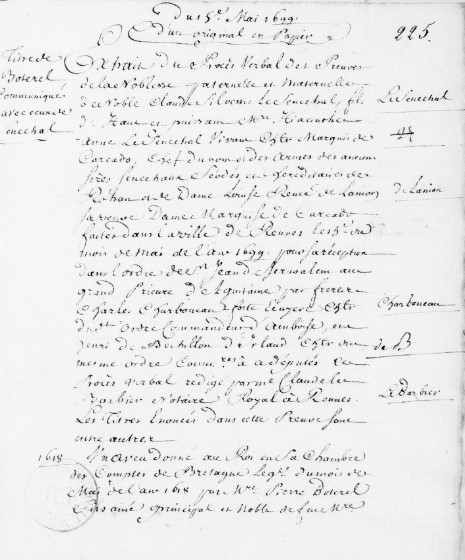 Du 15e. Mai 1699.
D'un original en Papier
225.
Titre de
Boterel
Communiqué
avec ceux de
Senechal
Extrait du Procès Verbal des Preuves
de la Noblesse paternelle et maternelle
de Noble Claude Le Senechal, fils
Le Senechal
de Haut et puissant Mre. Hiacinthe
Anne Le Senechal Vivant Chlr Marquis de
Carcado, Chef du nom et des Armes des anciens
Senechaux féodés et héréditaires de
Rohan et de Dame Louise Renée de Lannion
de Lanion
sa veuve Dame Marquise de Carcado
faites dans la ville de Rennes le 15e du
mois de Mai de l'an 1699. pour sa réception
dans l'ordre de St. Jean de Jerusalem au
grand Prieuré d'Aquitaine par frere
Charles Charboneau Chlr
Charboneau
du dit Ordre Commandeur d'Amboise, et
henri de Bechillon d'Irland Chlr du
de B
même ordre Commres. à députés ce
Procès verbal redigé par me Claude le
Barbier Notaire Royal à Rennes.
Le Barbier
Les Titres Enoncés dans cette Preuve sont
entre autres
1618
Un aveu donné au Roi en Sa Chambre
des Comptes de Bretagne du mois de
Mai de l'an 1618 par Mre Pierre Boterel
fils aîné principal et Noble de feu Mre